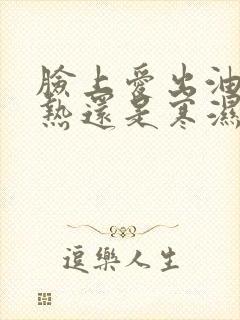 臉上愛出油
熱還是寒濕
逗樂人生